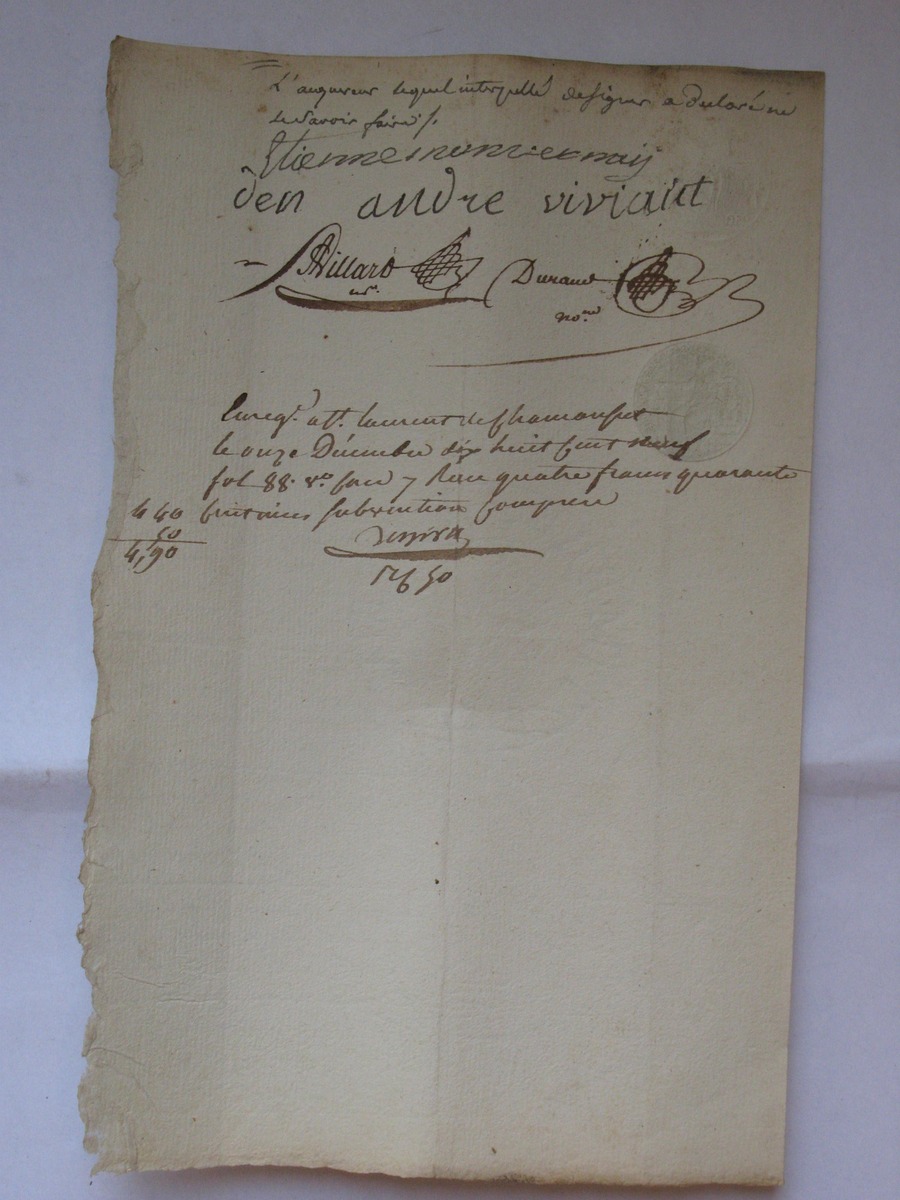 L'acquereur lequel interpellé de signer a declaré ne
le savoir faire /.
Etienne
den andre viviant
Villard Durand
no.re
Enreg.é à St. Laurent de Chamousset
le onze Décembre dix huit cent neuf
fol 88 v.o case 7 Reçu quatre francs quarante
4 40 centimes subvention comprise
50
4,90